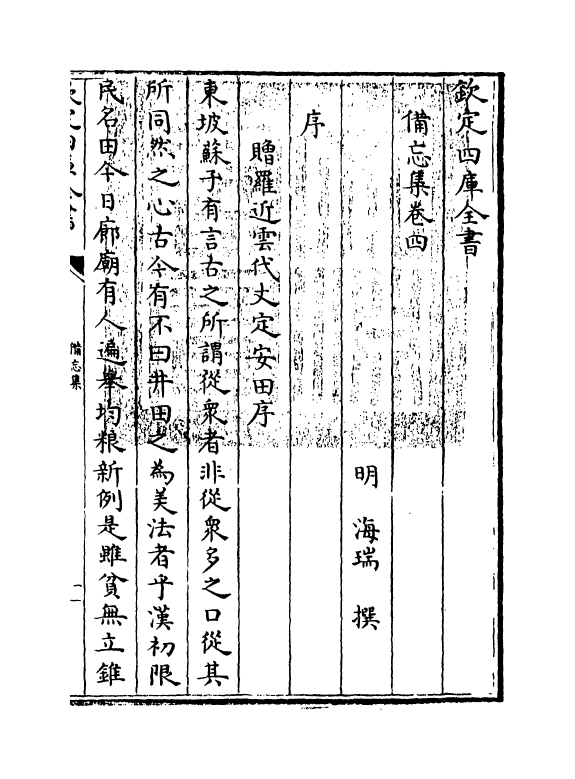 欽定四庫全書
備忘集卷四
明 海瑞 撰
序
贈羅近雲代丈定安田序
東坡蘇子有言古之所謂從衆者非從衆多之口從其
所同然之心古今有不曰井田之為美法者乎漢初限
民名田今日廊廟有人遍舉均粮新例是雖貧無立錐
欽定四庫全書
備忘集
一